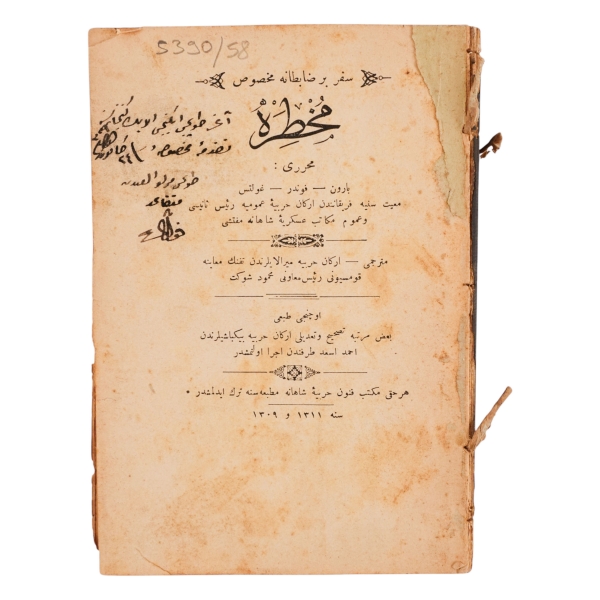 5390/58
سفر بر ضابطانه مخصوص
مُخْطِرَهْ
محرری :
بارون — فوندر — غولتس
معیت سنیه فریقانندن ارکان حربیۀ عمومیه رئیس ثانیسی
وعموم مکاتب عسکریۀ شاهانه مفتشی
مترجمی — ارکان حربیه میرالایلرندن تفنك معاینه
قومسیونی رئیس معاونی محمود شوکت
اوچنجی طبعی
بعض مرتبه تصحیح وتعدیلی ارکان حربیه بیکباشیلرندن
احمد اسعد طرفندن اجرا اولنمشدر
هر حق مکتب فنون حربیۀ شاهانه مطبعه سنه ترك ایدلمشدر •
سنه ١٣١١ و ١٣٠٩